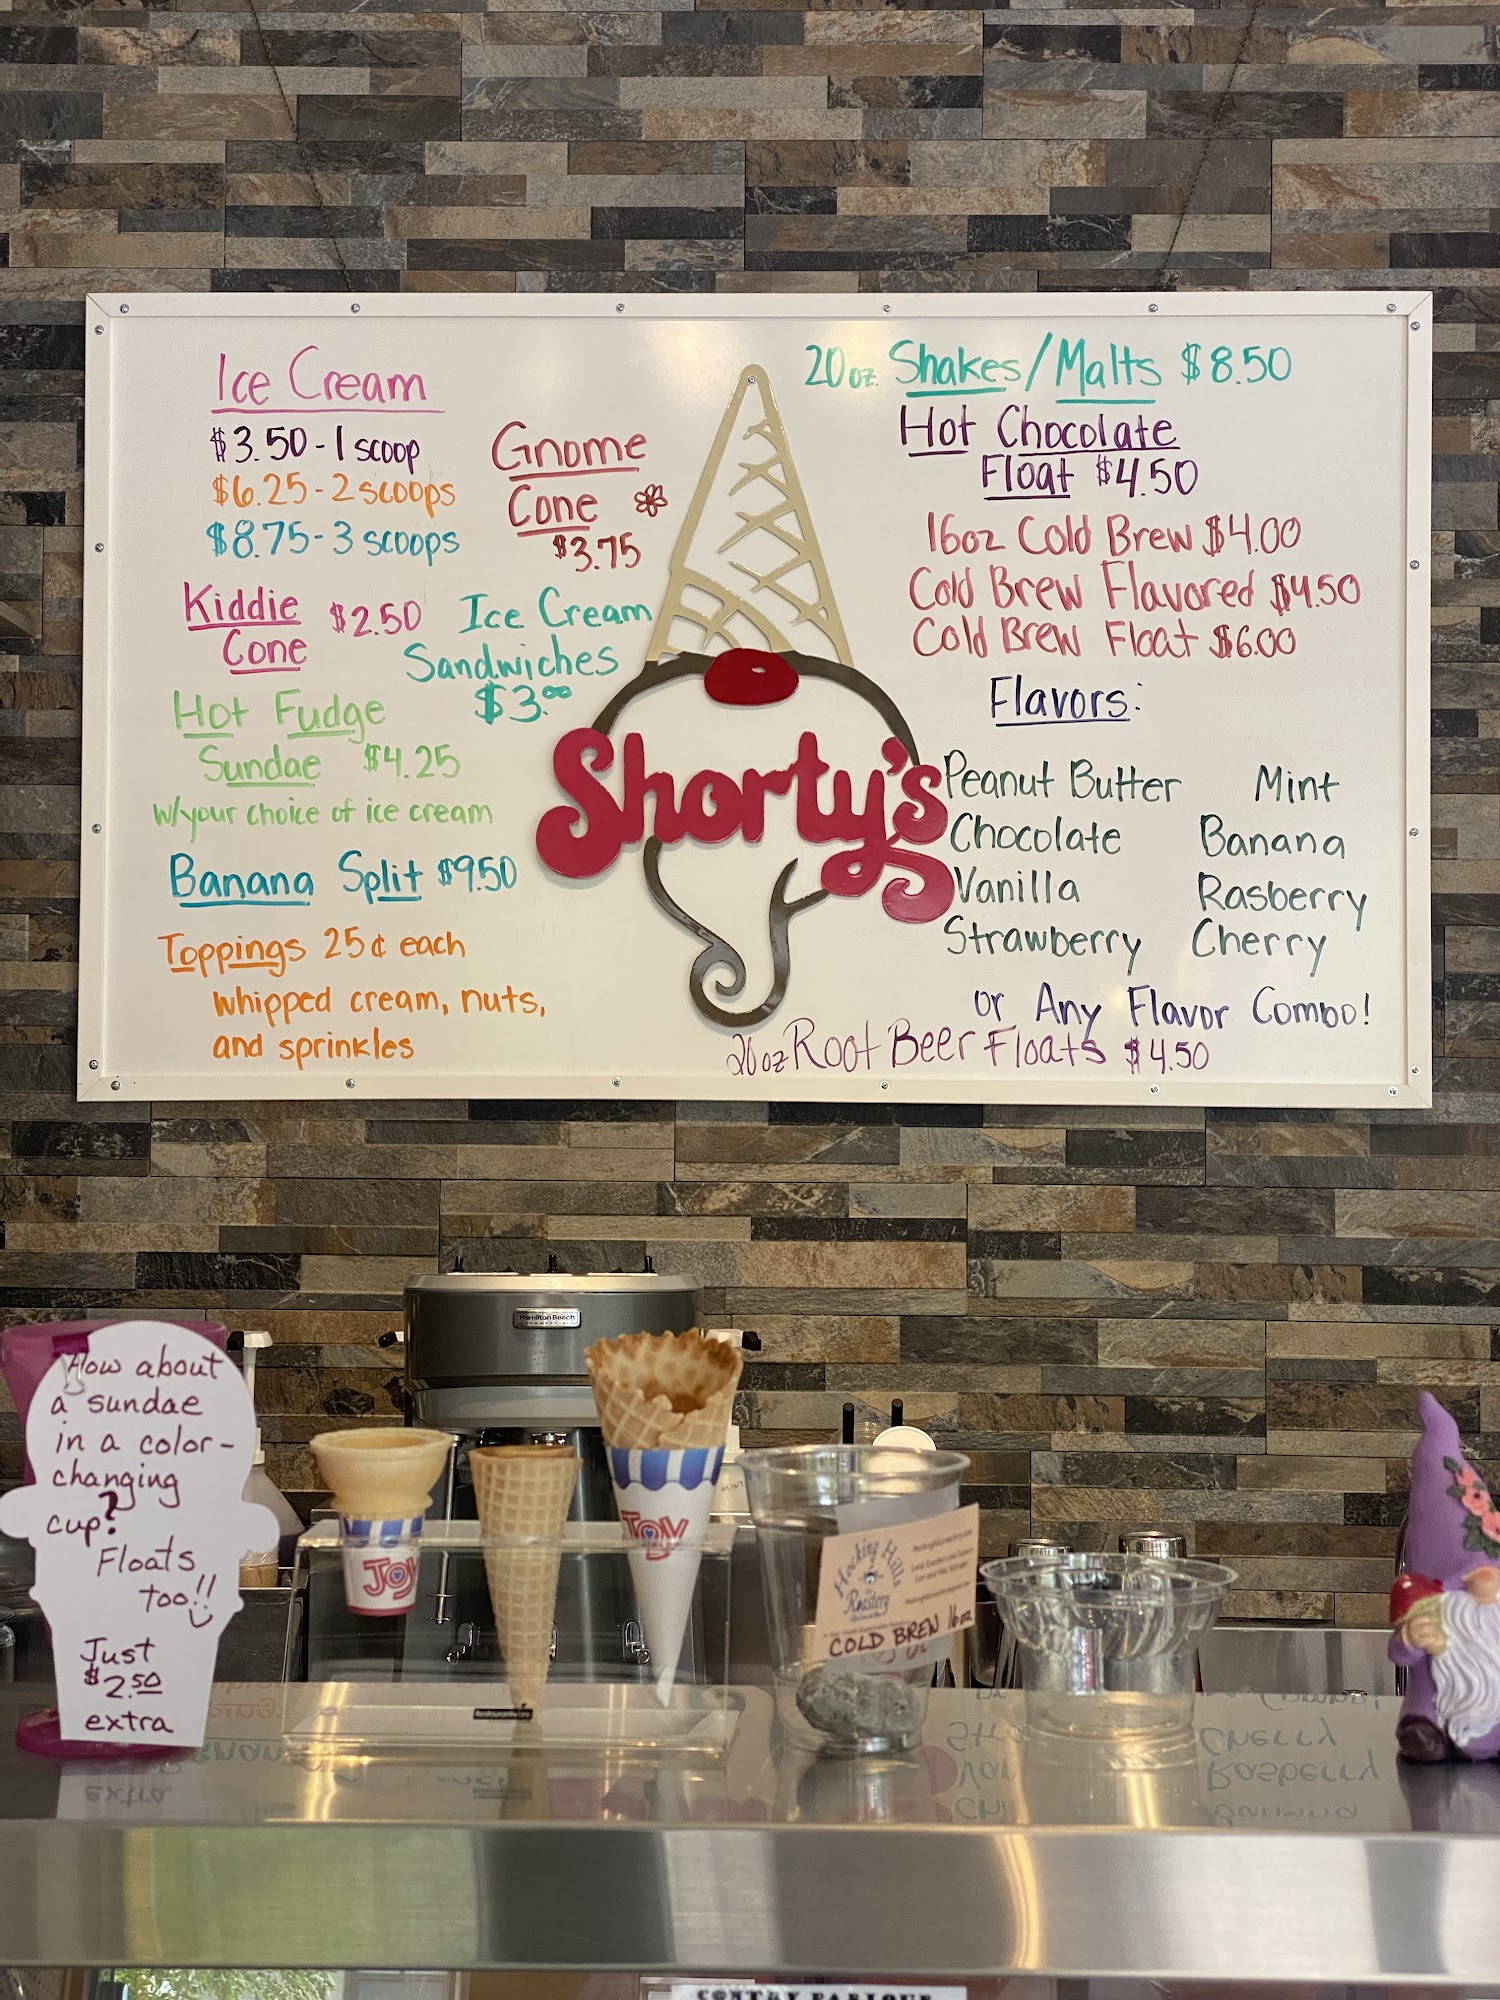 Ice Cream
$3.50 - 1 scoop
$6.25 - 2 scoops
$8.75 - 3 scoops
Gnome
Cone
$3.75
Kiddie
Cone
$2.50
Ice Cream
Sandwiches
$3.00
Hot Fudge
Sundae $4.25
w/your choice of ice cream
Banana Split $9.50
Toppings 25¢ each
whipped cream, nuts,
and sprinkles
Shorty's
20 oz. Shakes/Malts $8.50
Hot Chocolate
Float $4.50
16oz Cold Brew $4.00
Cold Brew Flavored $4.50
Cold Brew Float $6.00
Flavors:
Peanut Butter Mint
Chocolate Banana
Vanilla Rasberry
Strawberry Cherry
or Any Flavor Combo!
20 oz Root Beer Floats $4.50
Hamilton Beach
COMMERCIAL
How about
a sundae
in a color-
changing
cup?
Floats
too!!
Just
$2.50
extra
JOY
JOY
Hocking Hills
Roastery
COLD BREW 16oz